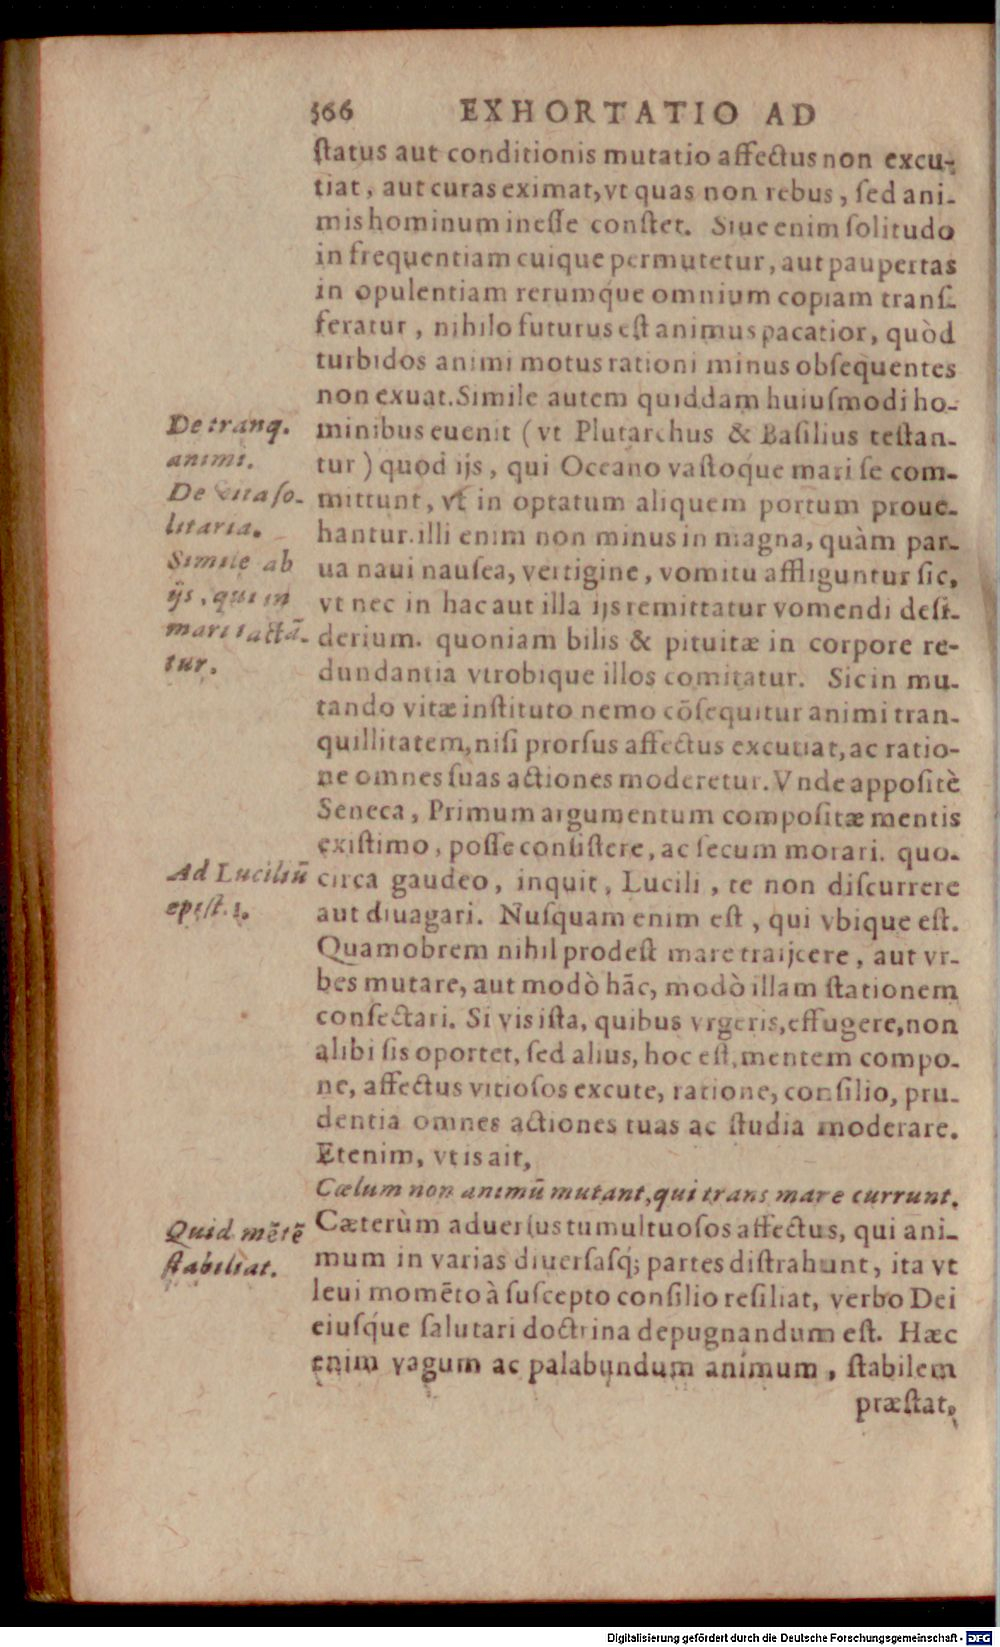 566 EXHORTATIO AD
ſtatus aut conditionis mutatio affectus non excu-
tiat, aut curas eximat, vt quas non rebus, ſed ani-
mis hominum ineſſe conſtet. Siue enim ſolitudo
in frequentiam cuique permutetur, aut paupertas
in opulentiam rerumq́ue omnium copiam tranſ-
feratur, nihilo futurus eſt animus pacatior, quòd
turbidos animi motus rationi minus obſequentes
non exuat. Simile autem quiddam huiuſmodi ho-
De tranq. minibus euenit (vt Plutarchus & Baſilius teſtan-
animi. tur) quod ijs, qui Oceano vaſtoque mari ſe com-
De vita ſo- mittunt, vt in optatum aliquem portum proue-
litaria. hantur. illi enim non minus in magna, quàm par-
Simile ab ua naui nauſea, vertigine, vomitu affliguntur ſic,
ijs, qui in vt nec in hac aut illa ijs remittatur vomendi deſi-
mari iactã- derium. quoniam bilis & pituitæ in corpore re-
tur. dundantia vtrobique illos comitatur. Sic in mu-
tando vitæ inſtituto nemo cõſequitur animi tran-
quillitatem, niſi prorſus affectus excutiat, ac ratio-
ne omnes ſuas actiones moderetur. Vnde appoſitè
Seneca, Primum argumentum compoſitæ mentis
exiſtimo, poſſe conſiſtere, ac ſecum morari. quo-
Ad Luciliũ circa gaudeo, inquit, Lucili, te non diſcurrere
epiſt. 1. aut diuagari. Nuſquam enim eſt, qui vbique eſt.
Quamobrem nihil prodeſt mare traijcere, aut vr-
bes mutare, aut modò hãc, modò illam ſtationem
conſectari. Si vis iſta, quibus vrgeris, effugere, non
alibi ſis oportet, ſed alius, hoc eſt, mentem compo-
ne, affectus vitioſos excute, ratione, conſilio, pru-
dentia omnes actiones tuas ac ſtudia moderare.
Etenim, vt is ait,
Cælum non animũ mutant, qui trans mare currunt.
Quid mẽtẽ Cæterùm aduerſus tumultuoſos affectus, qui ani-
ſtabiliat. mum in varias diuerſaſq́; partes diſtrahunt, ita vt
leui momẽto à ſuſcepto conſilio reſiliat, verbo Dei
eiuſq́ue ſalutari doctrina depugnandum eſt. Hæc
enim vagum ac palabundum animum, ſtabilem
præſtat,
Digitalisierung gefördert durch die Deutsche Forschungsgemeinschaft - DFG